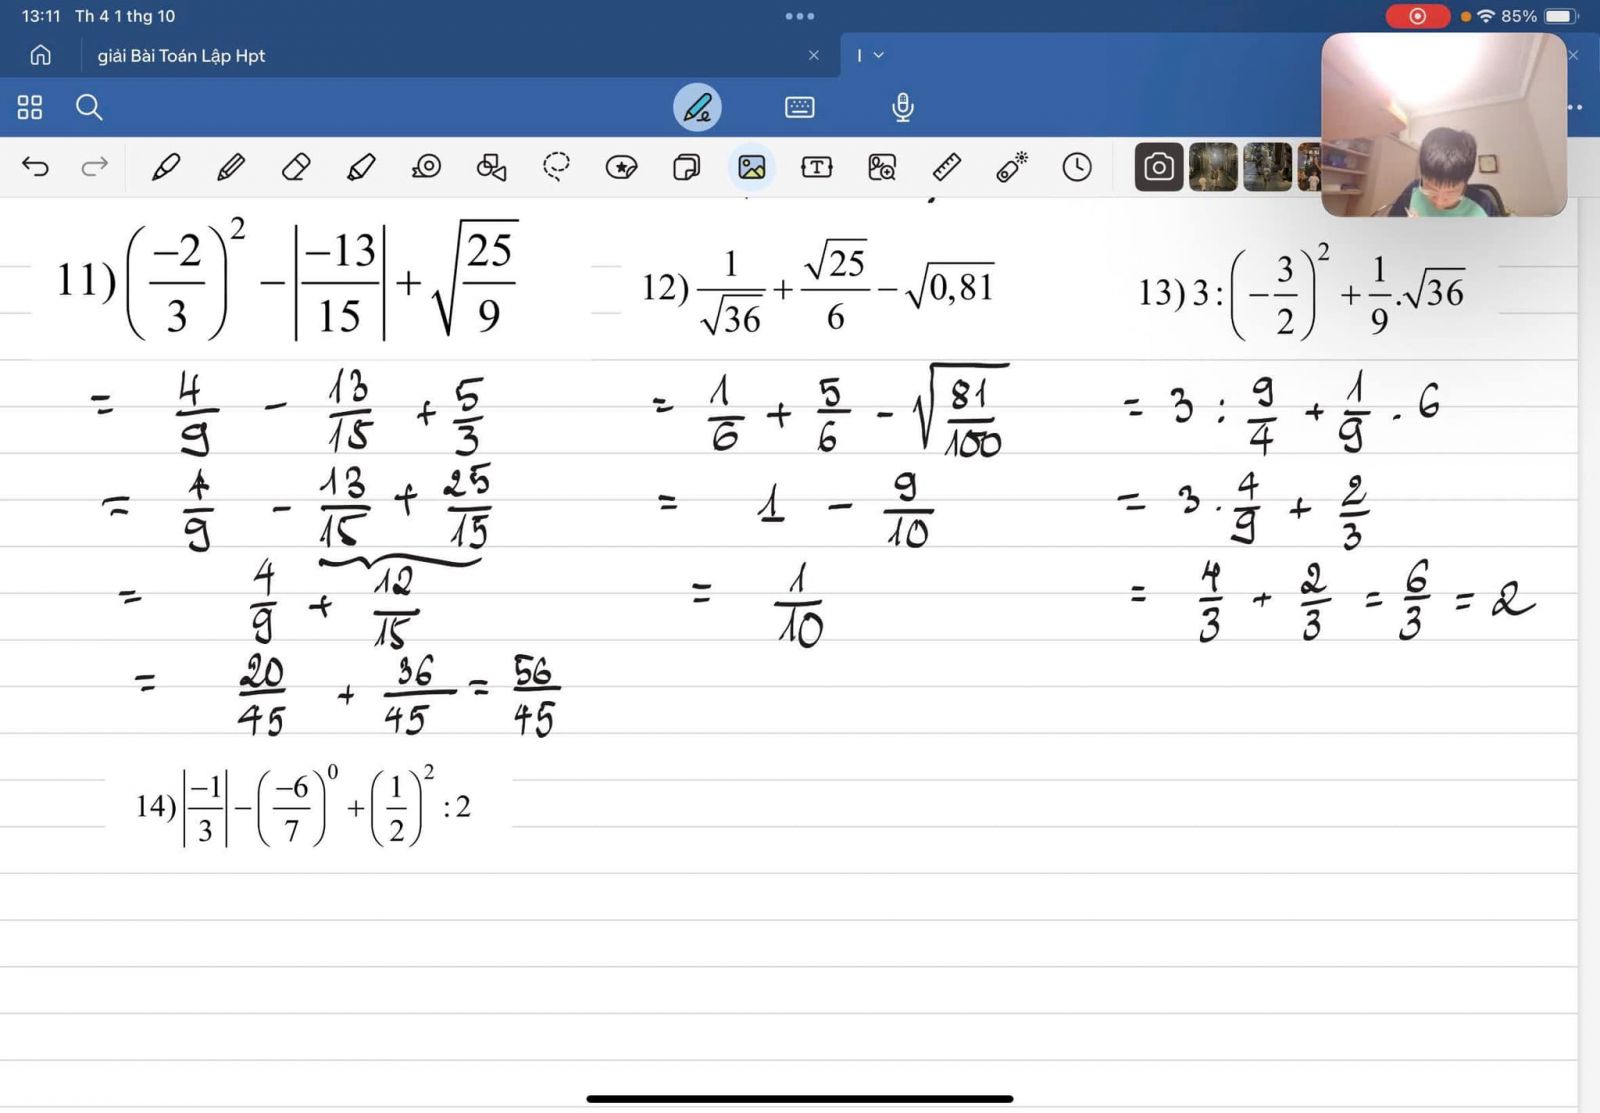 13:11 Th 4 1 thg 10
85%
giải Bài Toán Lập Hpt
I
11) (-2/3)^2 - |-13/15| + √(25/9)
= 4/9 - 13/15 + 5/3
= 4/9 - 13/15 + 25/15
= 4/9 + 12/15
= 20/45 + 36/45 = 56/45
12) 1/√36 + √25/6 - √0,81
= 1/6 + 5/6 - √(81/100)
= 1 - 9/10
= 1/10
13) 3 : (-3/2)^2 + 1/9 . √36
= 3 : 9/4 + 1/9 . 6
= 3 . 4/9 + 2/3
= 4/3 + 2/3 = 6/3 = 2
14) |-1/3| - (-6/7)^0 + (1/2)^2 : 2